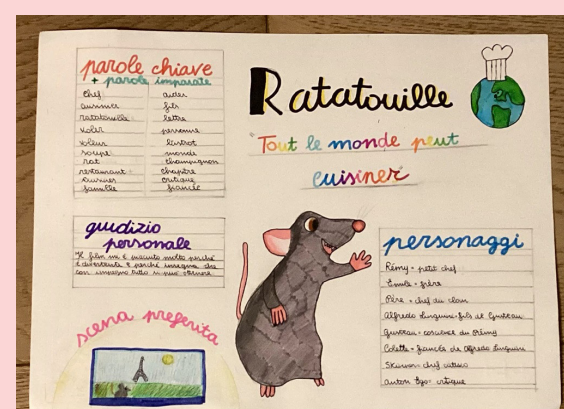 parole chiave
+ parole imparate
chef
cuisiner
ratatouille
voler
voleur
soupe
rat
restaurant
cuisiner
famille
aider
fils
lettre
personne
bistrot
monde
champignon
chapitre
critique
fiancée
Ratatouille
"Tout le monde peut
cuisiner"
giudizio
personale
Il film mi è piaciuto molto perché
è divertente e perché insegna che
con impegno tutto si può ottenere.
scena preferita
personaggi
Rémy = petit chef
Émile = frère
Père = chef du clan
Alfredo Linguini = fils de Gusteau
Gusteau = conscience du Rémy
Colette = fiancée de Alfredo Linguini
Skinner = chef cattivo
Anton Ego = critique